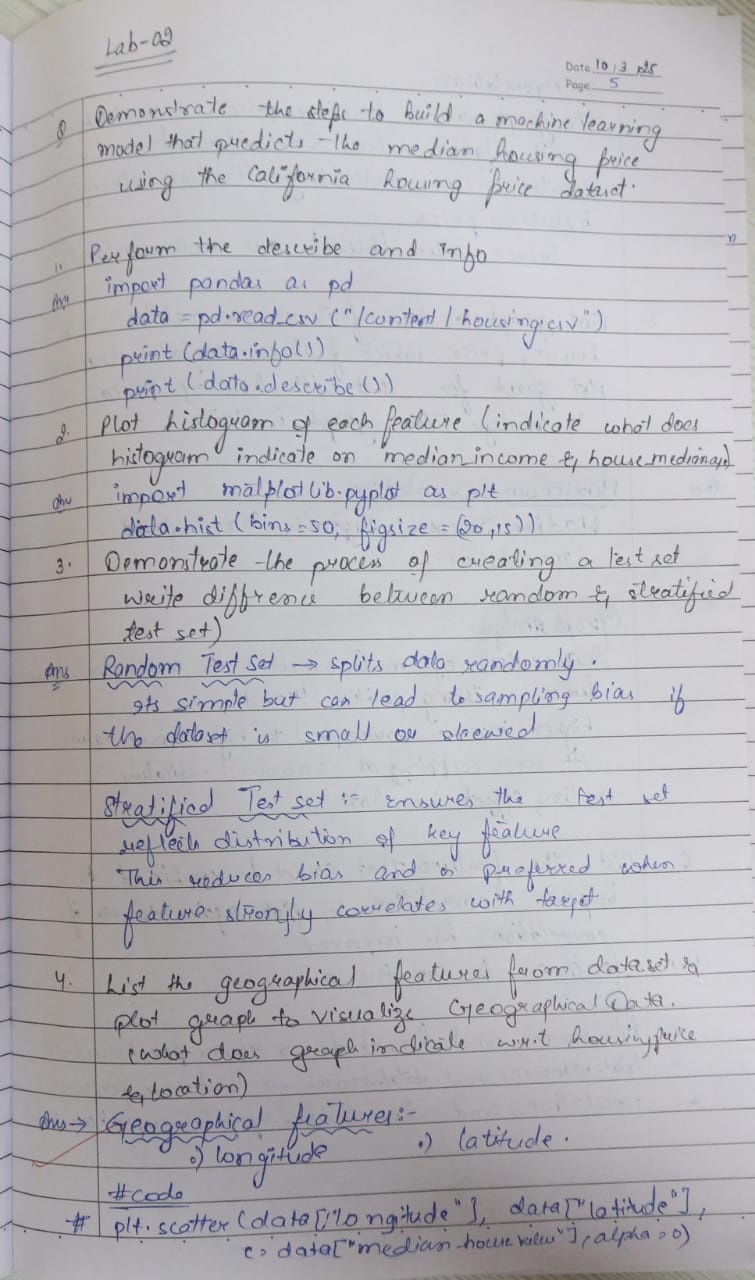 Lab-02
Date 10/3/25
Page 5
Q Demonstrate the steps to build a machine learning
model that predicts the median housing price
using the California housing price dataset.
1. Perform the describe and info
Ans import pandas as pd
data = pd.read_csv ("/content/housing.csv")
print (data.info())
print (data.describe())
2. Plot histogram of each feature (indicate what does
histogram indicate on median_income & house_median age)
Ans import matplotlib.pyplot as plt
data.hist (bins=50, figsize = (20,15))
3. Demonstrate the process of creating a test set
write diffrence between random & stratified
test set)
Ans Random Test Set → splits data randomly.
Its simple but can lead to sampling bias if
the dataset is small or skewed
Stratified Test set :- ensures the test set
reflects distribution of key feature
This reduces bias and is preferred when
feature strongly correlates with target
4. List the geographical features from dataset &
plot graph to visualize Geographical Data.
(what does graph indicate w.r.t housing price
& location)
Ans → Geographical features:-
•) longitude •) latitude.
#code
# plt.scatter(data["longitude"], data["latitude"],
c= data["median-house value"], alpha=0)